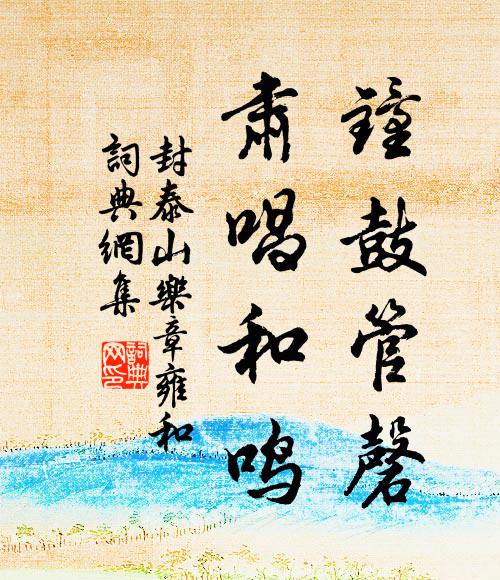 鐘鼓管磬
肅唱和鳴
封泰山樂章雍和
詞典網集
詞典网印